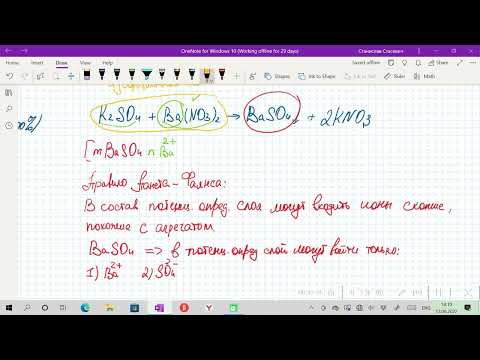 OneNote for Windows 10 (Working offline for 29 days)
Станислав Стасевич
Home Insert Draw View Help
Saved offline
Ink to Shape
K2SO4 + Ba(NO3)2 → BaSO4 + 2KNO3
[mBaSO4 n Ba²⁺
Правило Панета-Фаянса:
В состав потенц. опред. слоя могут входить ионы схожие,
похожие с агрегатом
BaSO4 => в потенц. опред слой могут войти только:
1) Ba²⁺ 2) SO4²⁻
ENG
14:10
13.06.2022